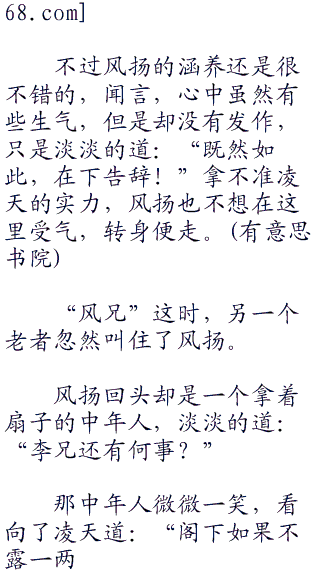 68.com]
不过风扬的涵养还是很
不错的，闻言，心中虽然有
些生气，但是却没有发作，
只是淡淡的道：“既然如
此，在下告辞！”拿不准凌
天的实力，风扬也不想在这
里受气，转身便走。(有意思
书院)
“风兄”这时，另一个
老者忽然叫住了风扬。
风扬回头却是一个拿着
扇子的中年人，淡淡的道：
“李兄还有何事？”
那中年人微微一笑，看
向了凌天道：“阁下如果不
露一两